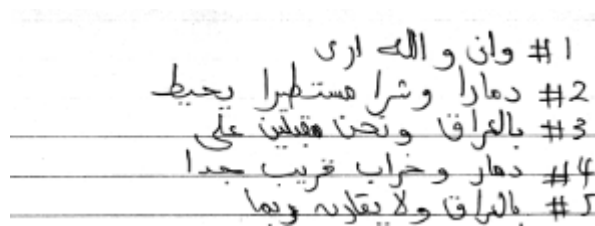 #1 وان والله ارى
#2 دمارا وشرا مستطيرا يحيط
#3 بالعراق ونحن مقبلين على
#4 دمار وخراب قريب جدا
#5 بالعراق ولا يقارنه وبما